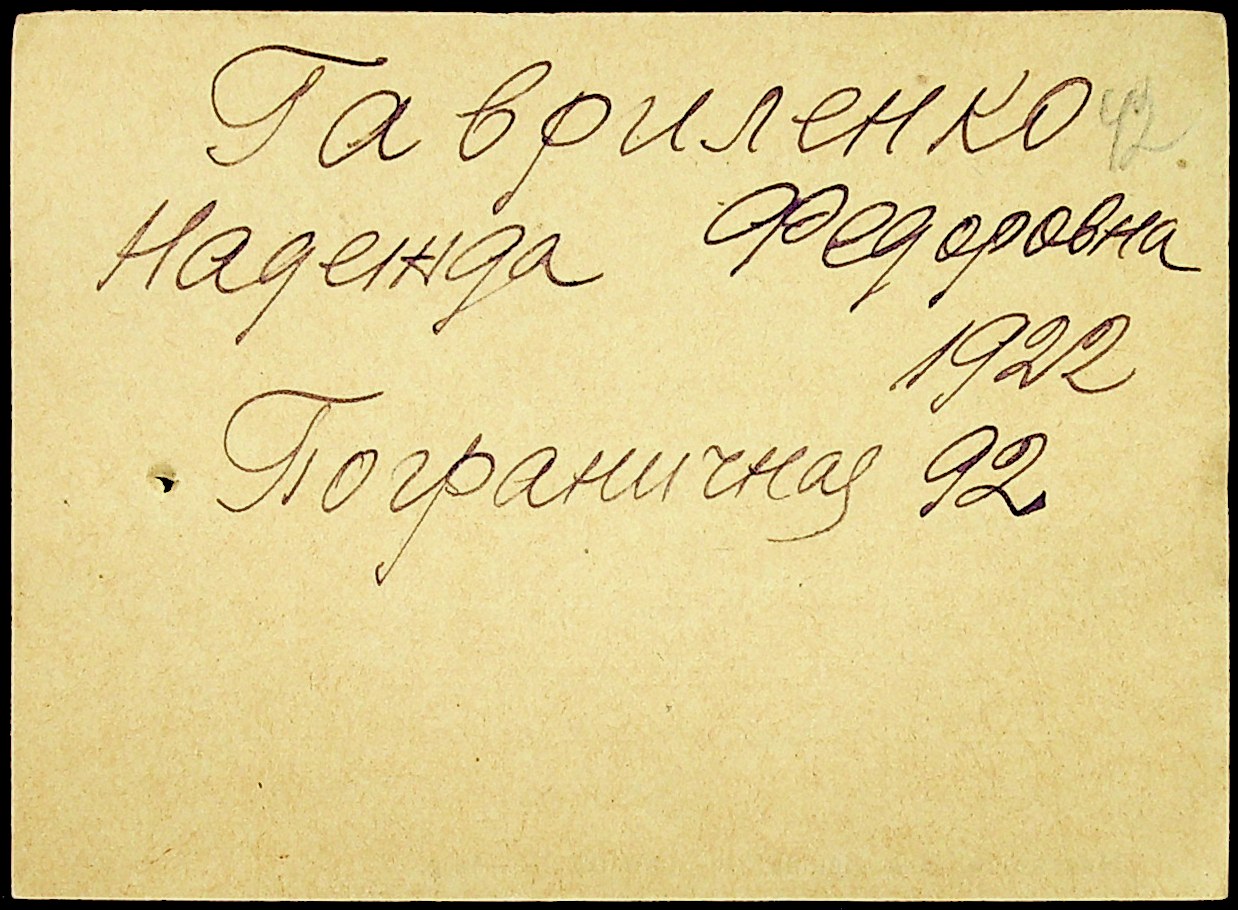 Гавриленко 42
Надежда Федоровна
1922
Пограничная 92